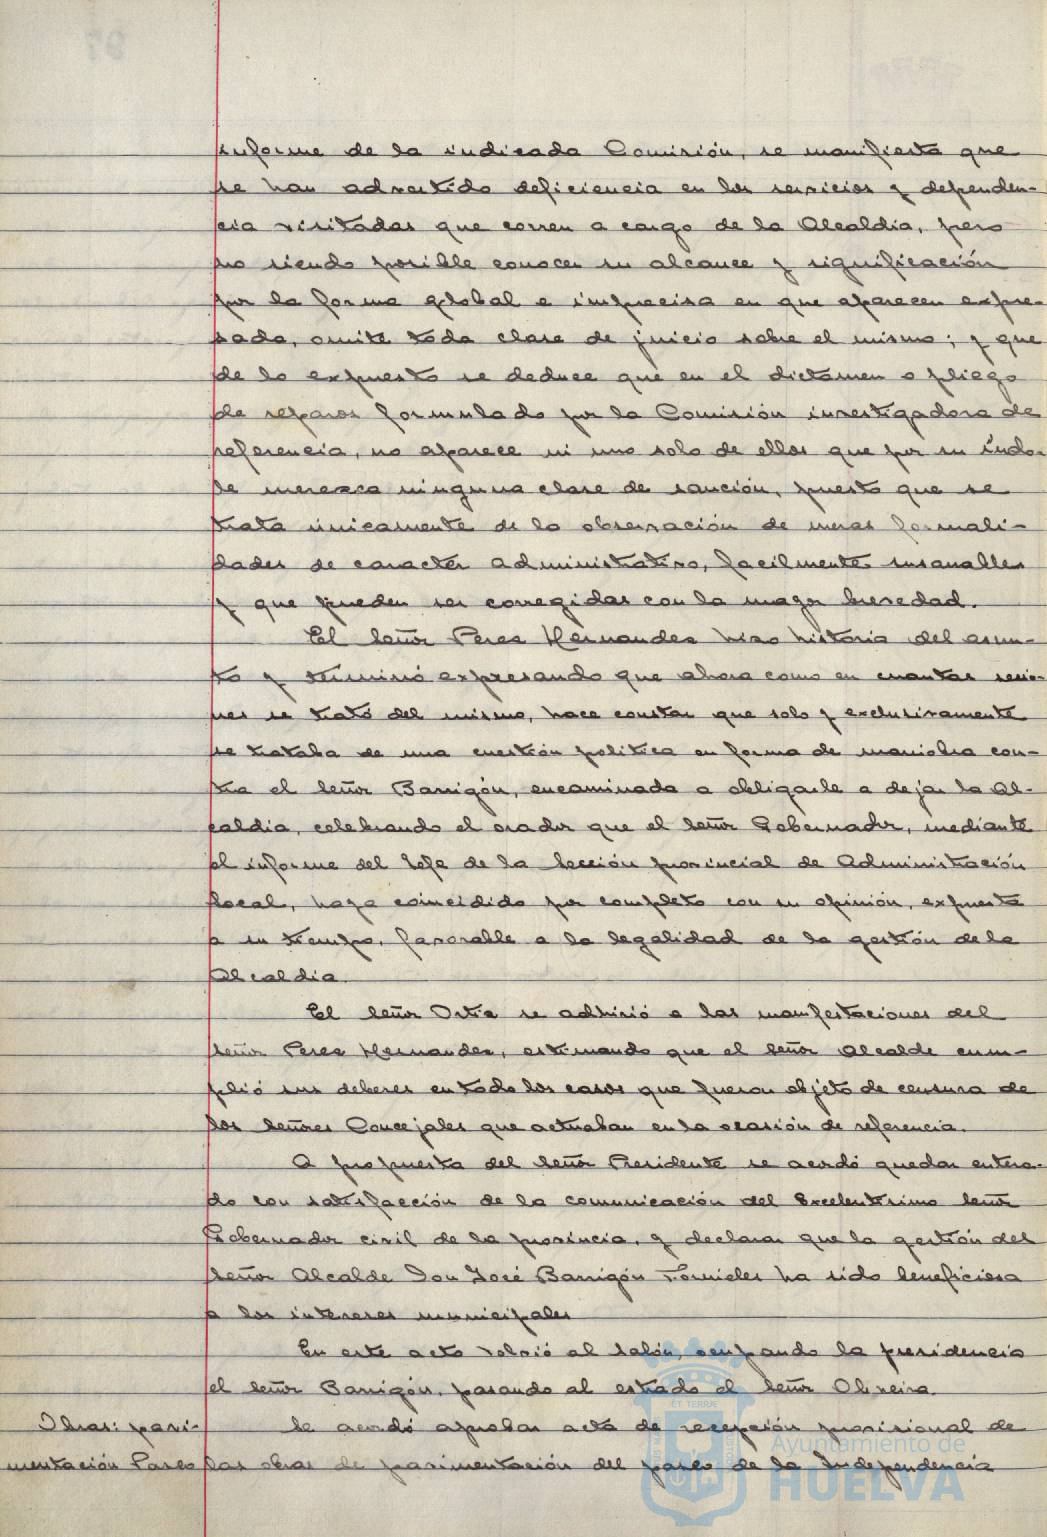 informe de la indicada Comisión, se manifiesta que
se han advertido deficiencia en los servicios y dependen-
cia visitadas que corren a cargo de la Alcaldia, pero
no siendo posible conocer su alcance y significación
por la forma global e imprecisa en que aparecen expre-
sada, omite toda clase de juicio sobre el mismo; y que
de lo expuesto se deduce que en el dictamen o pliego
de reparos formulado por la Comisión investigadora de
referencia, no aparece ni uno solo de ellos que por su indo-
le merezca ninguna clase de sanción, puesto que se
trata únicamente de la observación de meras formali-
dades de caracter administrativo, facilmente subsanables
y que pueden ser corregidas con la mayor brevedad.
El Señor Perez Hernandez hizo historia del asun-
to y terminó expresando que ahora como en cuantas sesio-
nes se trató del mismo, hace constar que solo y exclusivamente
se trataba de una cuestión politica en forma de maniobra con-
tra el Señor Barrigón, encaminada a obligarle a dejar la Al-
caldia, celebrando el orador que el Señor Gobernador, mediante
el informe del Jefe de la Sección provincial de Administración
local, haya coincidido por completo con su opinión, expuesta
a su tiempo, favorable a la legalidad de la gestión de la
Alcaldia.
El Señor Ortiz se adhirió a las manifestaciones del
Señor Perez Hernandez, estimando que el Señor Alcalde cum-
plió sus deberes en todo los casos que fueron objeto de censura de
los Señores Concejales que actuaban en la ocasión de referencia.
A propuesta del Señor Presidente se acordó quedar entera-
do con satisfacción de la comunicación del Excelentisimo Señor
Gobernador civil de la provincia, y declarar que la gestión del
Señor Alcalde Don José Barrigón Fornieles ha sido beneficiosa
a los intereses municipales
En este acto volvió al salón, ocupando la presidencia
el Señor Barrigón, pasando al estrado el Señor Oliveira.
Obras: pavi-
mentación Paseo
Se acordó aprobar acta de recepción provisional de
las obras de pavimentación del paseo de la Independencia
Ayuntamiento de
HUELVA